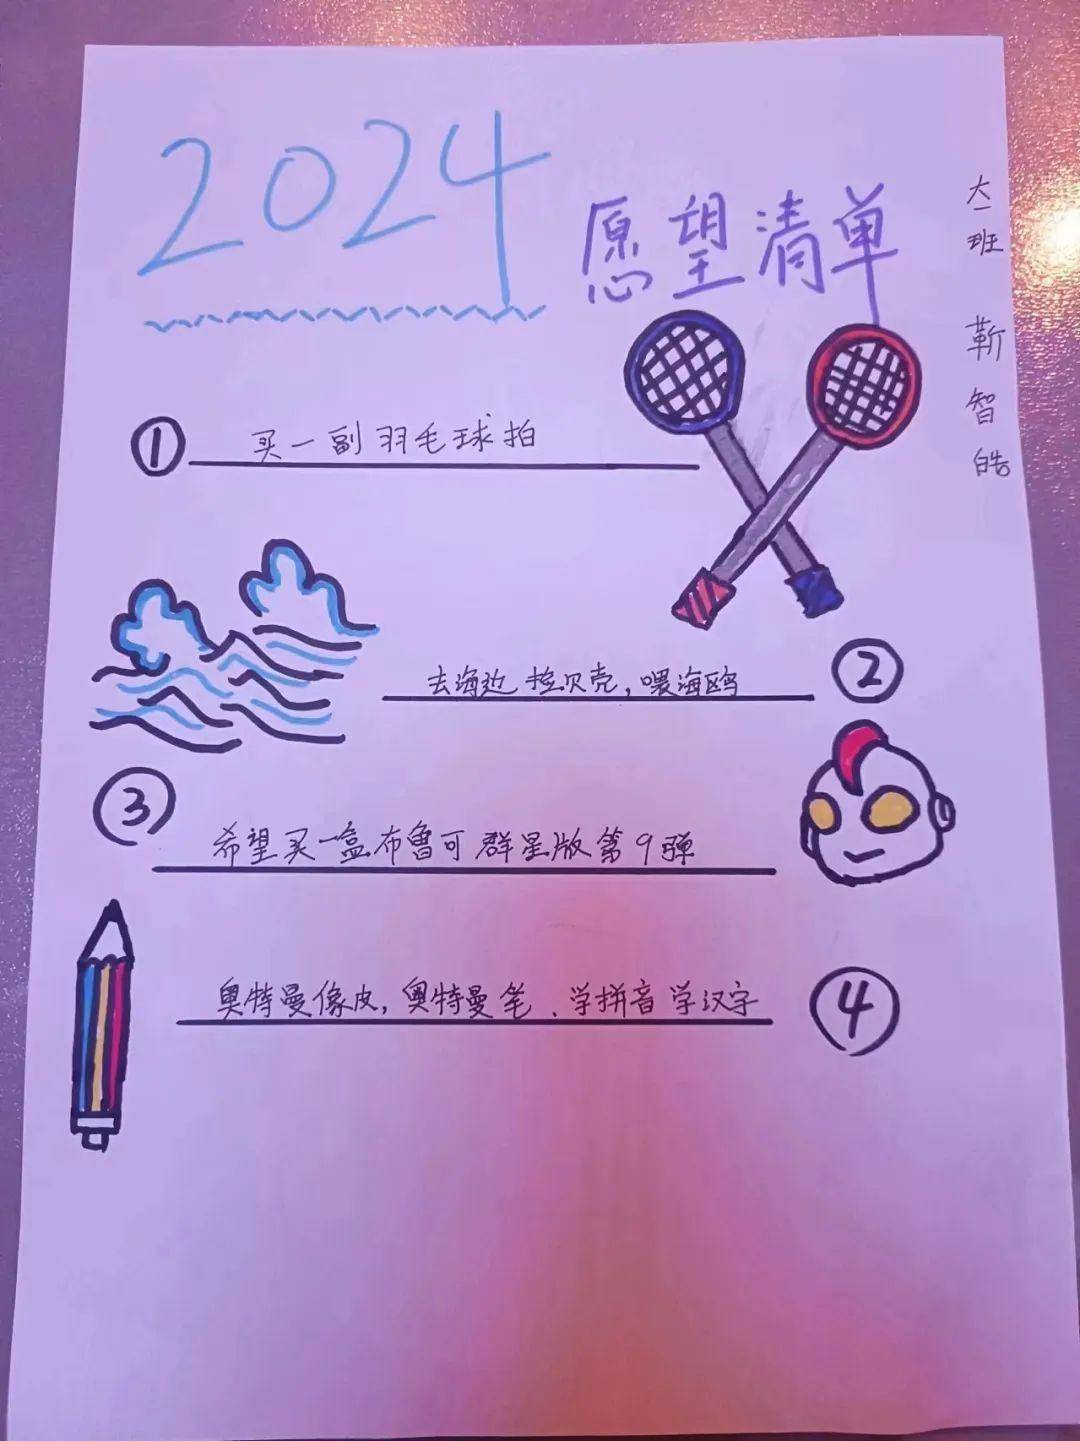 2024
愿望清单
大一班 靳智皓
① 买一副羽毛球拍
去海边捡贝壳,喂海鸥 ②
③ 希望买一盒布鲁可群星版第9弹
奥特曼像皮,奥特曼笔、学拼音学汉字 ④